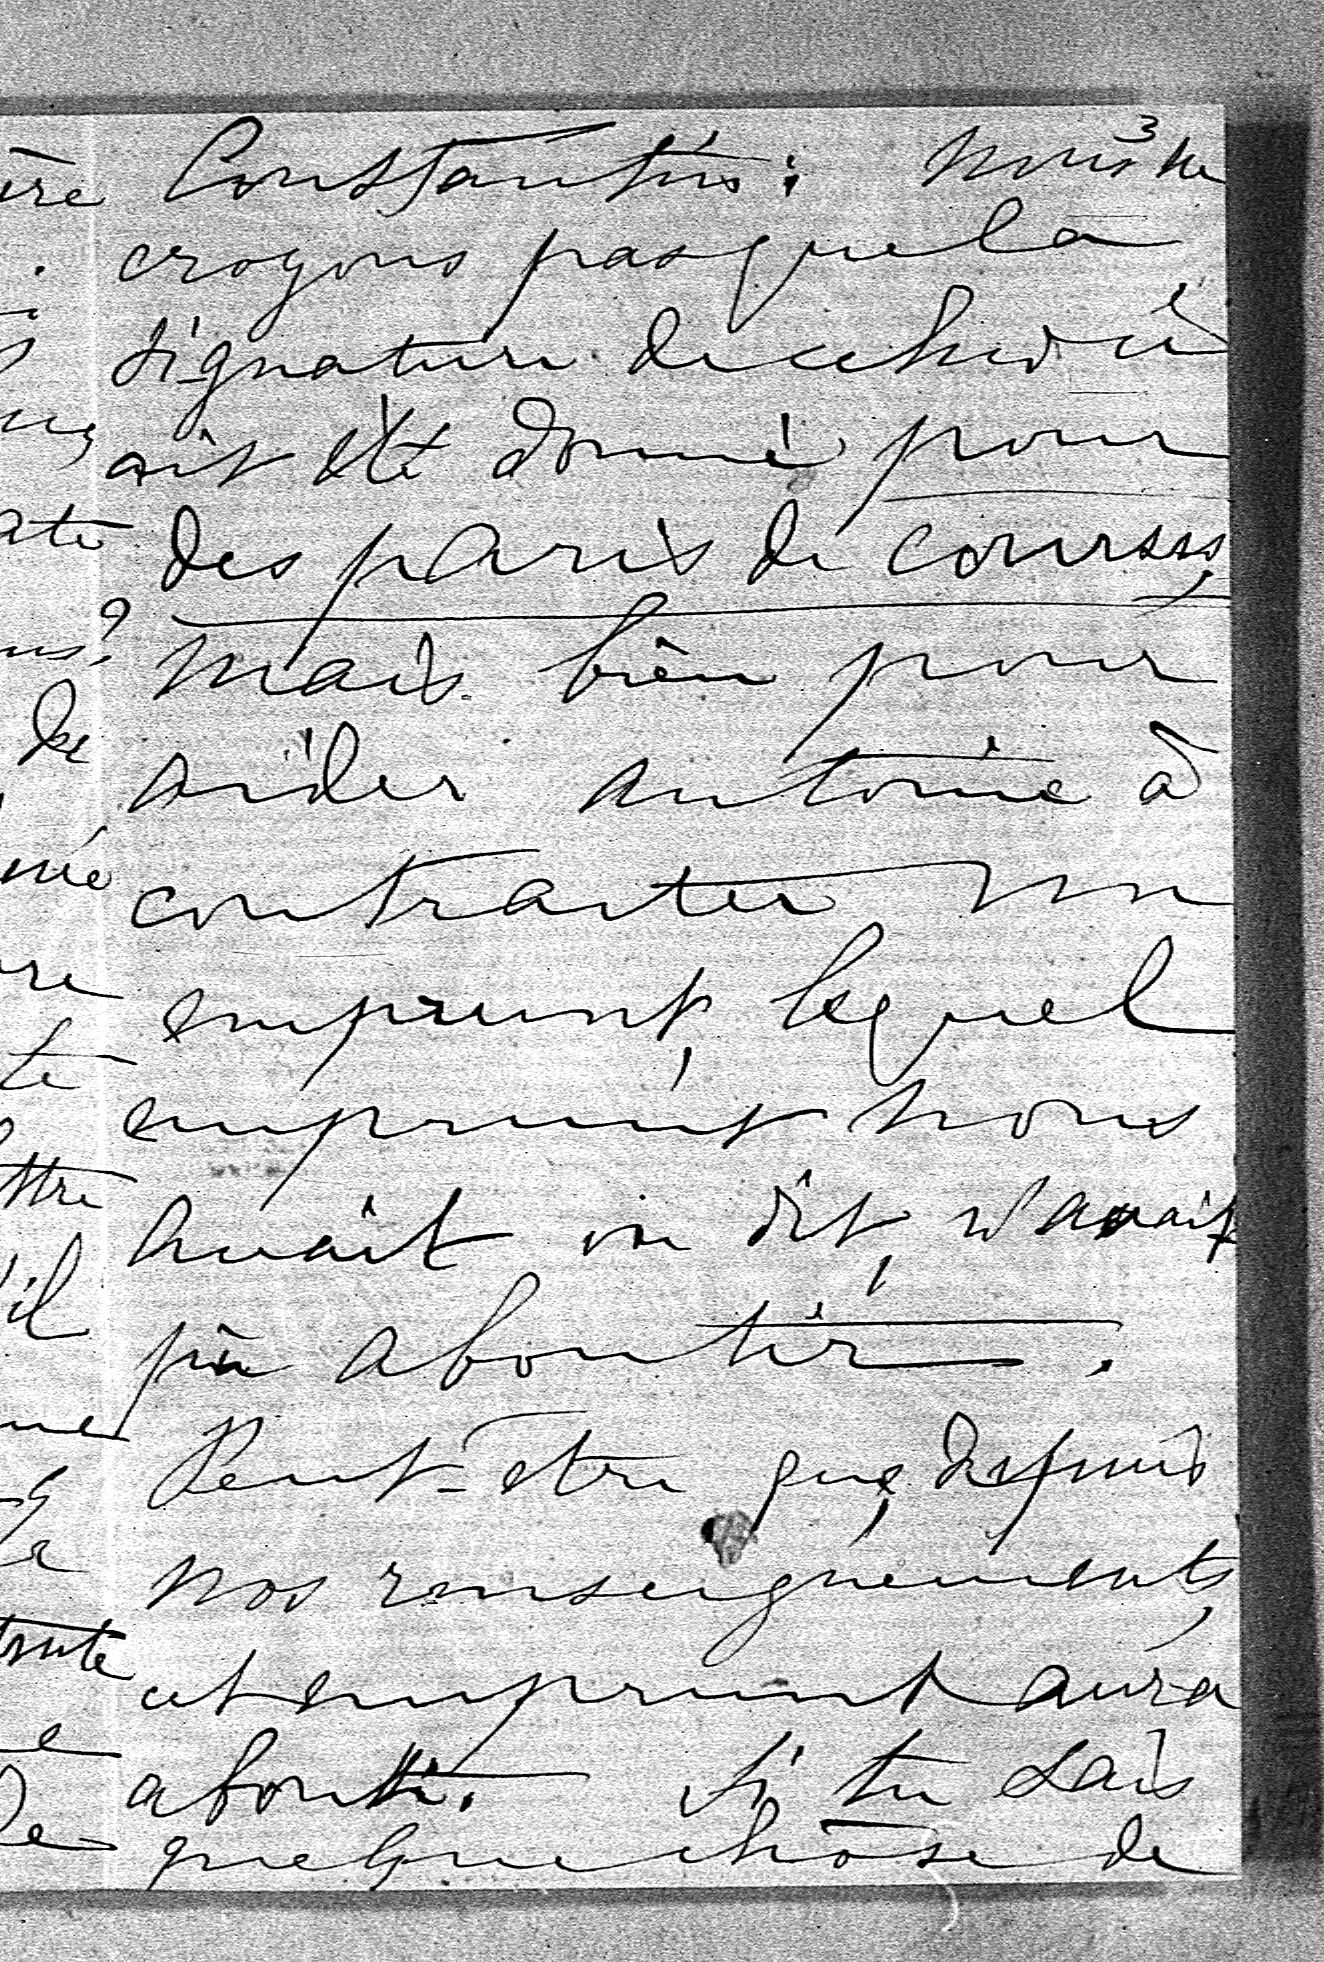 3
Constantin : nous ne
croyons pas que la
signature de celui-ci
ait été donné pour
des paris de courses,
mais bien pour
aider Antoine à
contracter un
emprunt, lequel
emprunt nous
avait on dit, n'avait
pu aboutir.
Peut-être que, depuis
nos renseignements,
cet emprunt aura
abouti. Si tu sais
quelque chose de